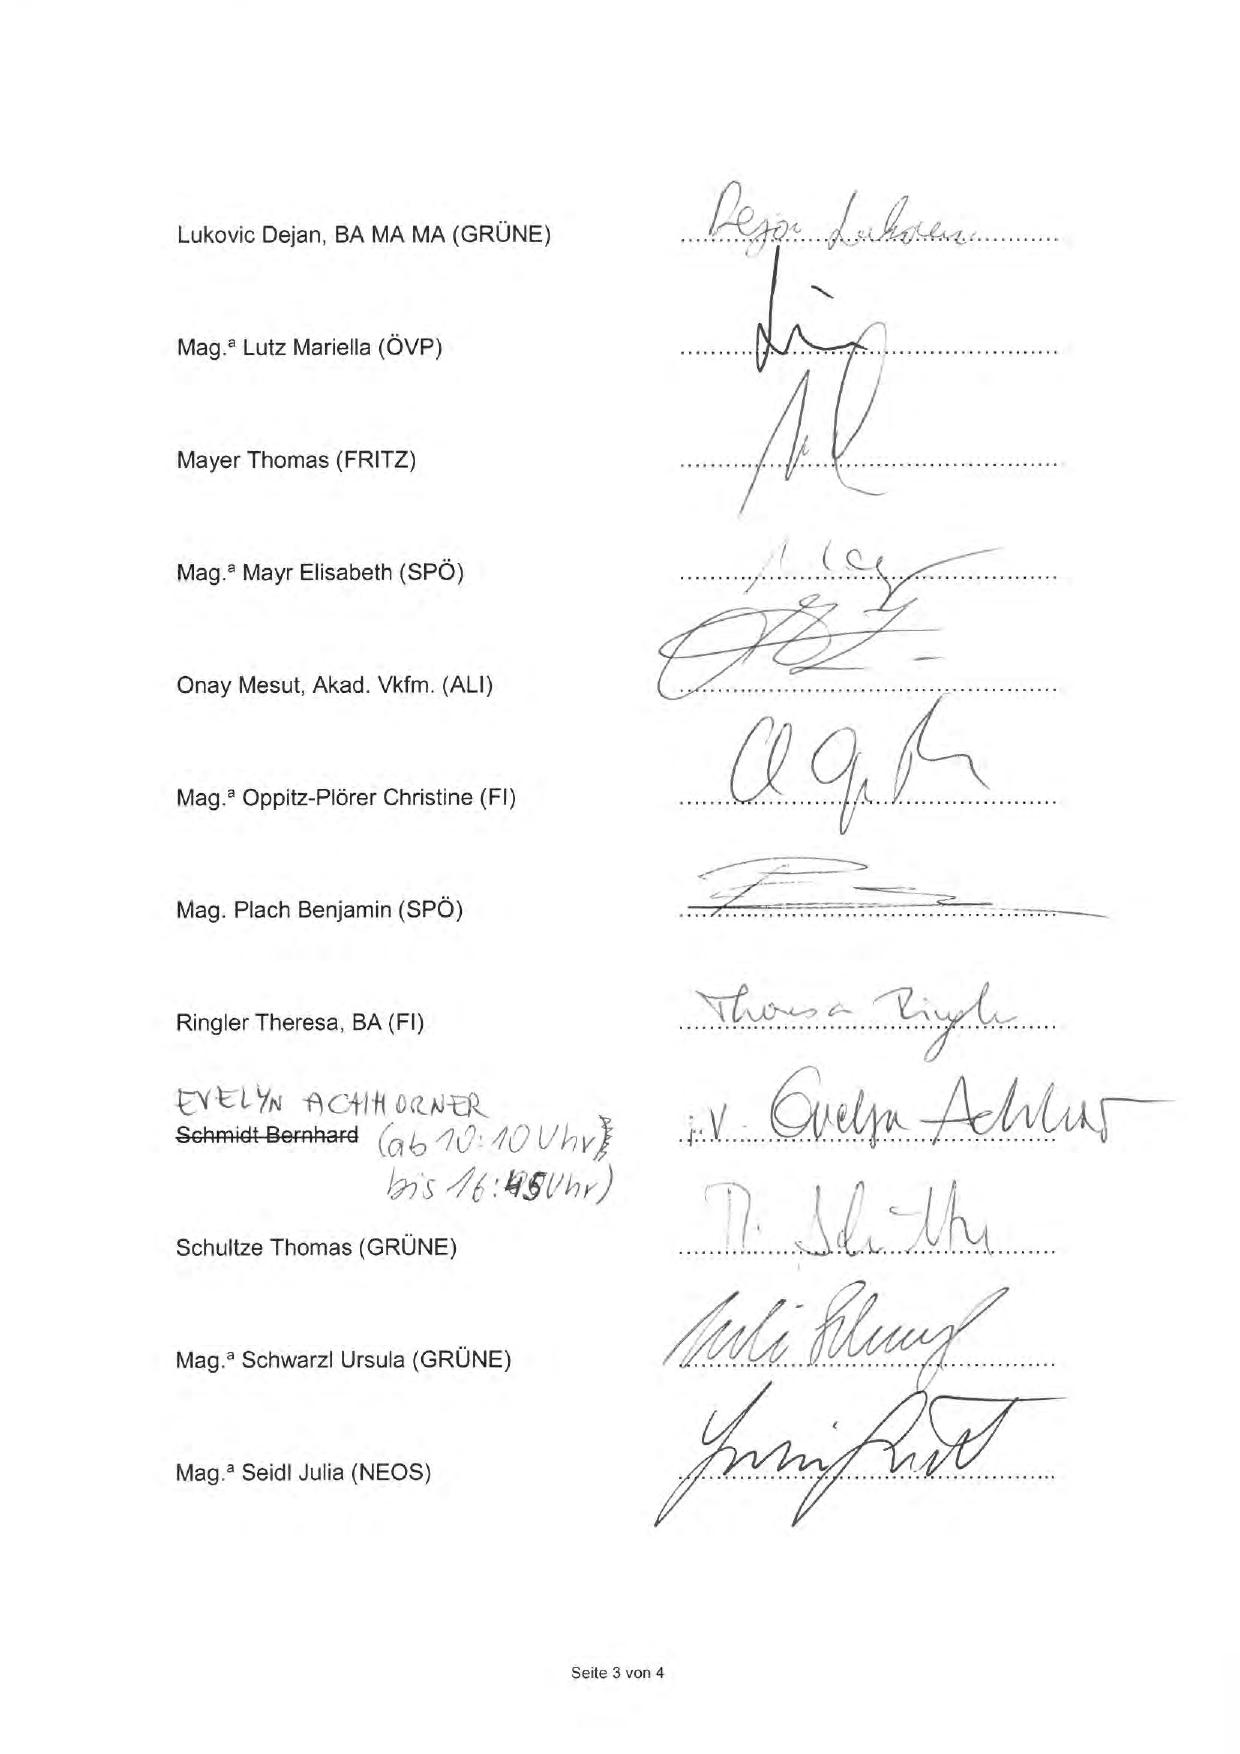 Lukovic Dejan, BA MA MA (GRÜNE) Dejan Lukovic
Mag.ª Lutz Mariella (ÖVP)
Mayer Thomas (FRITZ)
Mag.ª Mayr Elisabeth (SPÖ)
Onay Mesut, Akad. Vkfm. (ALI)
Mag.ª Oppitz-Plörer Christine (FI)
Mag. Plach Benjamin (SPÖ)
Ringler Theresa, BA (FI) Theresa Ringler
EVELYN ACHHORNER
Schmidt Bernhard (ab 10:10 Uhr) i.V. Evelyn Achhorner
bis 16:45 Uhr)
Schultze Thomas (GRÜNE)
Mag.ª Schwarzl Ursula (GRÜNE)
Mag.ª Seidl Julia (NEOS)
Seite 3 von 4